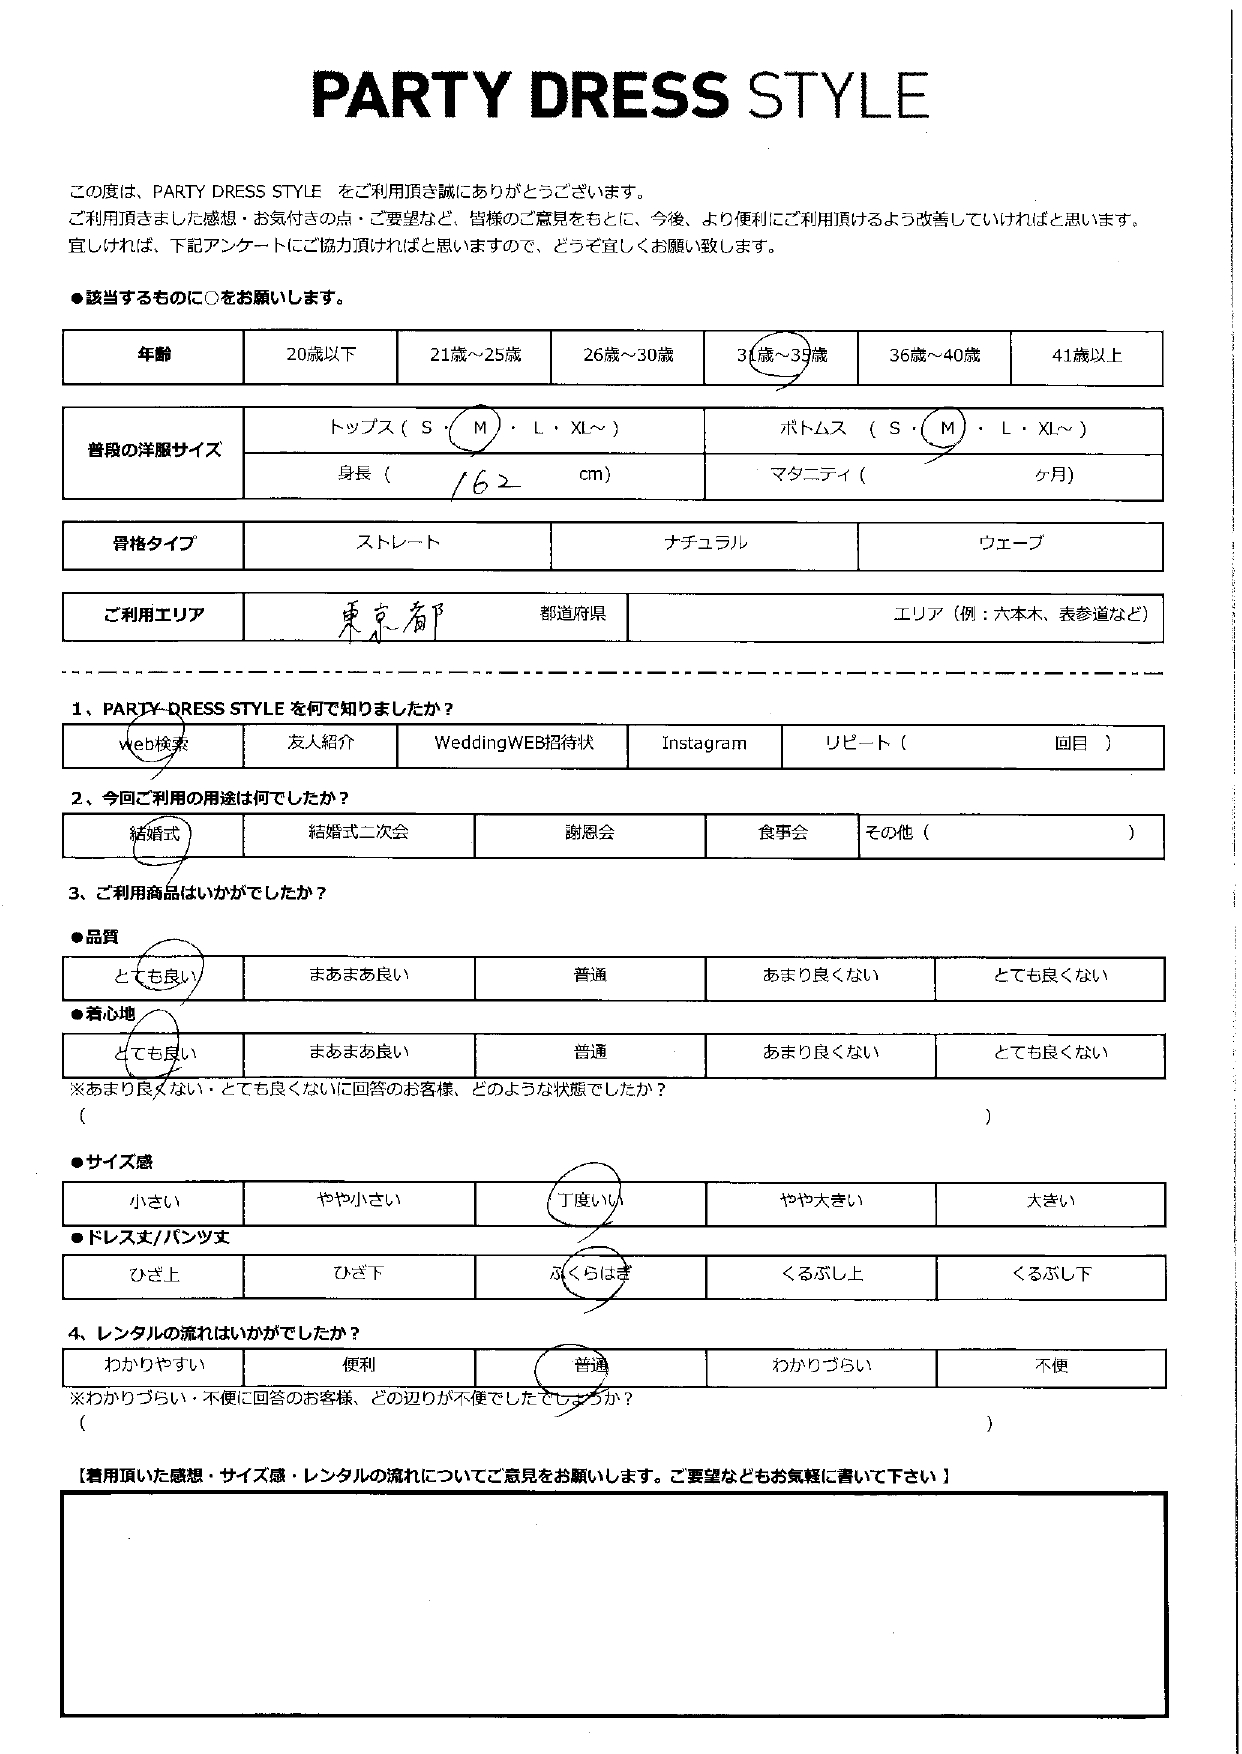 PARTY DRESS STYLE
この度は、PARTY DRESS STYLE をご利用頂き誠にありがとうございます。
ご利用頂きました感想・お気付きの点・ご要望など、皆様のご意見をもとに、今後、より便利にご利用頂けるよう改善していければと思います。
宜しければ、下記アンケートにご協力頂ければと思いますので、どうぞ宜しくお願い致します。
●該当するものに○をお願いします。
年齢 20歳以下 21歳～25歳 26歳～30歳 31歳～35歳 36歳～40歳 41歳以上
普段の洋服サイズ トップス ( S ・ M ・ L ・ XL～ ) ボトムス ( S ・ M ・ L ・ XL～ )
身長 ( 162 cm) マタニティ ( ヶ月)
骨格タイプ ストレート ナチュラル ウェーブ
ご利用エリア 東京都 都道府県 エリア（例：六本木、表参道など）
1、PARTY DRESS STYLE を何で知りましたか？
Web検索 友人紹介 WeddingWEB招待状 Instagram リピート ( 回目 )
2、今回ご利用の用途は何でしたか？
結婚式 結婚式二次会 謝恩会 食事会 その他 ( )
3、ご利用商品はいかがでしたか？
●品質
とても良い まあまあ良い 普通 あまり良くない とても良くない
●着心地
とても良い まあまあ良い 普通 あまり良くない とても良くない
※あまり良くない・とても良くないに回答のお客様、どのような状態でしたか？
( )
●サイズ感
小さい やや小さい 丁度いい やや大きい 大きい
●ドレス丈/パンツ丈
ひざ上 ひざ下 ふくらはぎ くるぶし上 くるぶし下
4、レンタルの流れはいかがでしたか？
わかりやすい 便利 普通 わかりづらい 不便
※わかりづらい・不便に回答のお客様、どの辺りが不便でしたでしょうか？
( )
【着用頂いた感想・サイズ感・レンタルの流れについてご意見をお願いします。ご要望などもお気軽に書いて下さい 】